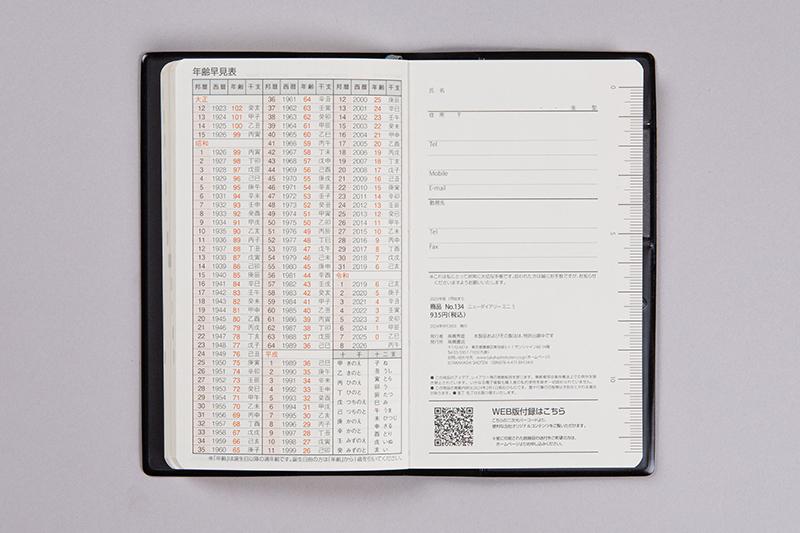 年齢早見表
邦暦 西暦 年齢 干支
大正
12 1923 102 癸亥
13 1924 101 甲子
14 1925 100 乙丑
15 1926 99 丙寅
昭和
1 1926 99 丙寅
2 1927 98 丁卯
3 1928 97 戊辰
4 1929 96 己巳
5 1930 95 庚午
6 1931 94 辛未
7 1932 93 壬申
8 1933 92 癸酉
9 1934 91 甲戌
10 1935 90 乙亥
11 1936 89 丙子
12 1937 88 丁丑
13 1938 87 戊寅
14 1939 86 己卯
15 1940 85 庚辰
16 1941 84 辛巳
17 1942 83 壬午
18 1943 82 癸未
19 1944 81 甲申
20 1945 80 乙酉
21 1946 79 丙戌
22 1947 78 丁亥
23 1948 77 戊子
24 1949 76 己丑
25 1950 75 庚寅
26 1951 74 辛卯
27 1952 73 壬辰
28 1953 72 癸巳
29 1954 71 甲午
30 1955 70 乙未
31 1956 69 丙申
32 1957 68 丁酉
33 1958 67 戊戌
34 1959 66 己亥
35 1960 65 庚子
邦暦 西暦 年齢 干支
36 1961 64 辛丑
37 1962 63 壬寅
38 1963 62 癸卯
39 1964 61 甲辰
40 1965 60 乙巳
41 1966 59 丙午
42 1967 58 丁未
43 1968 57 戊申
44 1969 56 己酉
45 1970 55 庚戌
46 1971 54 辛亥
47 1972 53 壬子
48 1973 52 癸丑
49 1974 51 甲寅
50 1975 50 乙卯
51 1976 49 丙辰
52 1977 48 丁巳
53 1978 47 戊午
54 1979 46 己未
55 1980 45 庚申
56 1981 44 辛酉
57 1982 43 壬戌
58 1983 42 癸亥
59 1984 41 甲子
60 1985 40 乙丑
61 1986 39 丙寅
62 1987 38 丁卯
63 1988 37 戊辰
64 1989 36 己巳
平成
1 1989 36 己巳
2 1990 35 庚午
3 1991 34 辛未
4 1992 33 壬申
5 1993 32 癸酉
6 1994 31 甲戌
7 1995 30 乙亥
8 1996 29 丙子
9 1997 28 丁丑
10 1998 27 戊寅
11 1999 26 己卯
邦暦 西暦 年齢 干支
12 2000 25 庚辰
13 2001 24 辛巳
14 2002 23 壬午
15 2003 22 癸未
16 2004 21 甲申
17 2005 20 乙酉
18 2006 19 丙戌
19 2007 18 丁亥
20 2008 17 戊子
21 2009 16 己丑
22 2010 15 庚寅
23 2011 14 辛卯
24 2012 13 壬辰
25 2013 12 癸巳
26 2014 11 甲午
27 2015 10 乙未
28 2016 9 丙申
29 2017 8 丁酉
30 2018 7 戊戌
31 2019 6 己亥
令和
1 2019 6 己亥
2 2020 5 庚子
3 2021 4 辛丑
4 2022 3 壬寅
5 2023 2 癸卯
6 2024 1 甲辰
7 2025 0 乙巳
8 2026 丙午
十干 十二支
甲 きのえ 子 ね
乙 きのと 丑 うし
丙 ひのえ 寅 とら
丁 ひのと 卯 う
戊 つちのえ 辰 たつ
己 つちのと 巳 み
庚 かのえ 午 うま
辛 かのと 未 ひつじ
壬 みずのえ 申 さる
癸 みずのと 酉 とり
戌 いぬ
亥 い
※「年齢」は誕生日以降の満年齢。誕生日前の方は「年齢」から1歳を引いてください。
氏名
年 型
住所 〒
Tel
Mobile
E-mail
勤務先
Tel
Fax
※これは私にとって非常に大切な手帳です。拾われた方は誠にお手数ですが、お知らせ
くださいますようお願いいたします。
2025年版 1月始まり
商品 No.134 ニューダイアリー ミニ 1
935円(税込)
発行所 高橋書店
WEB版付録はこちら
こちらの二次元バーコードより、
便利な当社オリジナルコンテンツをご覧いただけます。
ホームページよりお申し込みください。
0
5
10